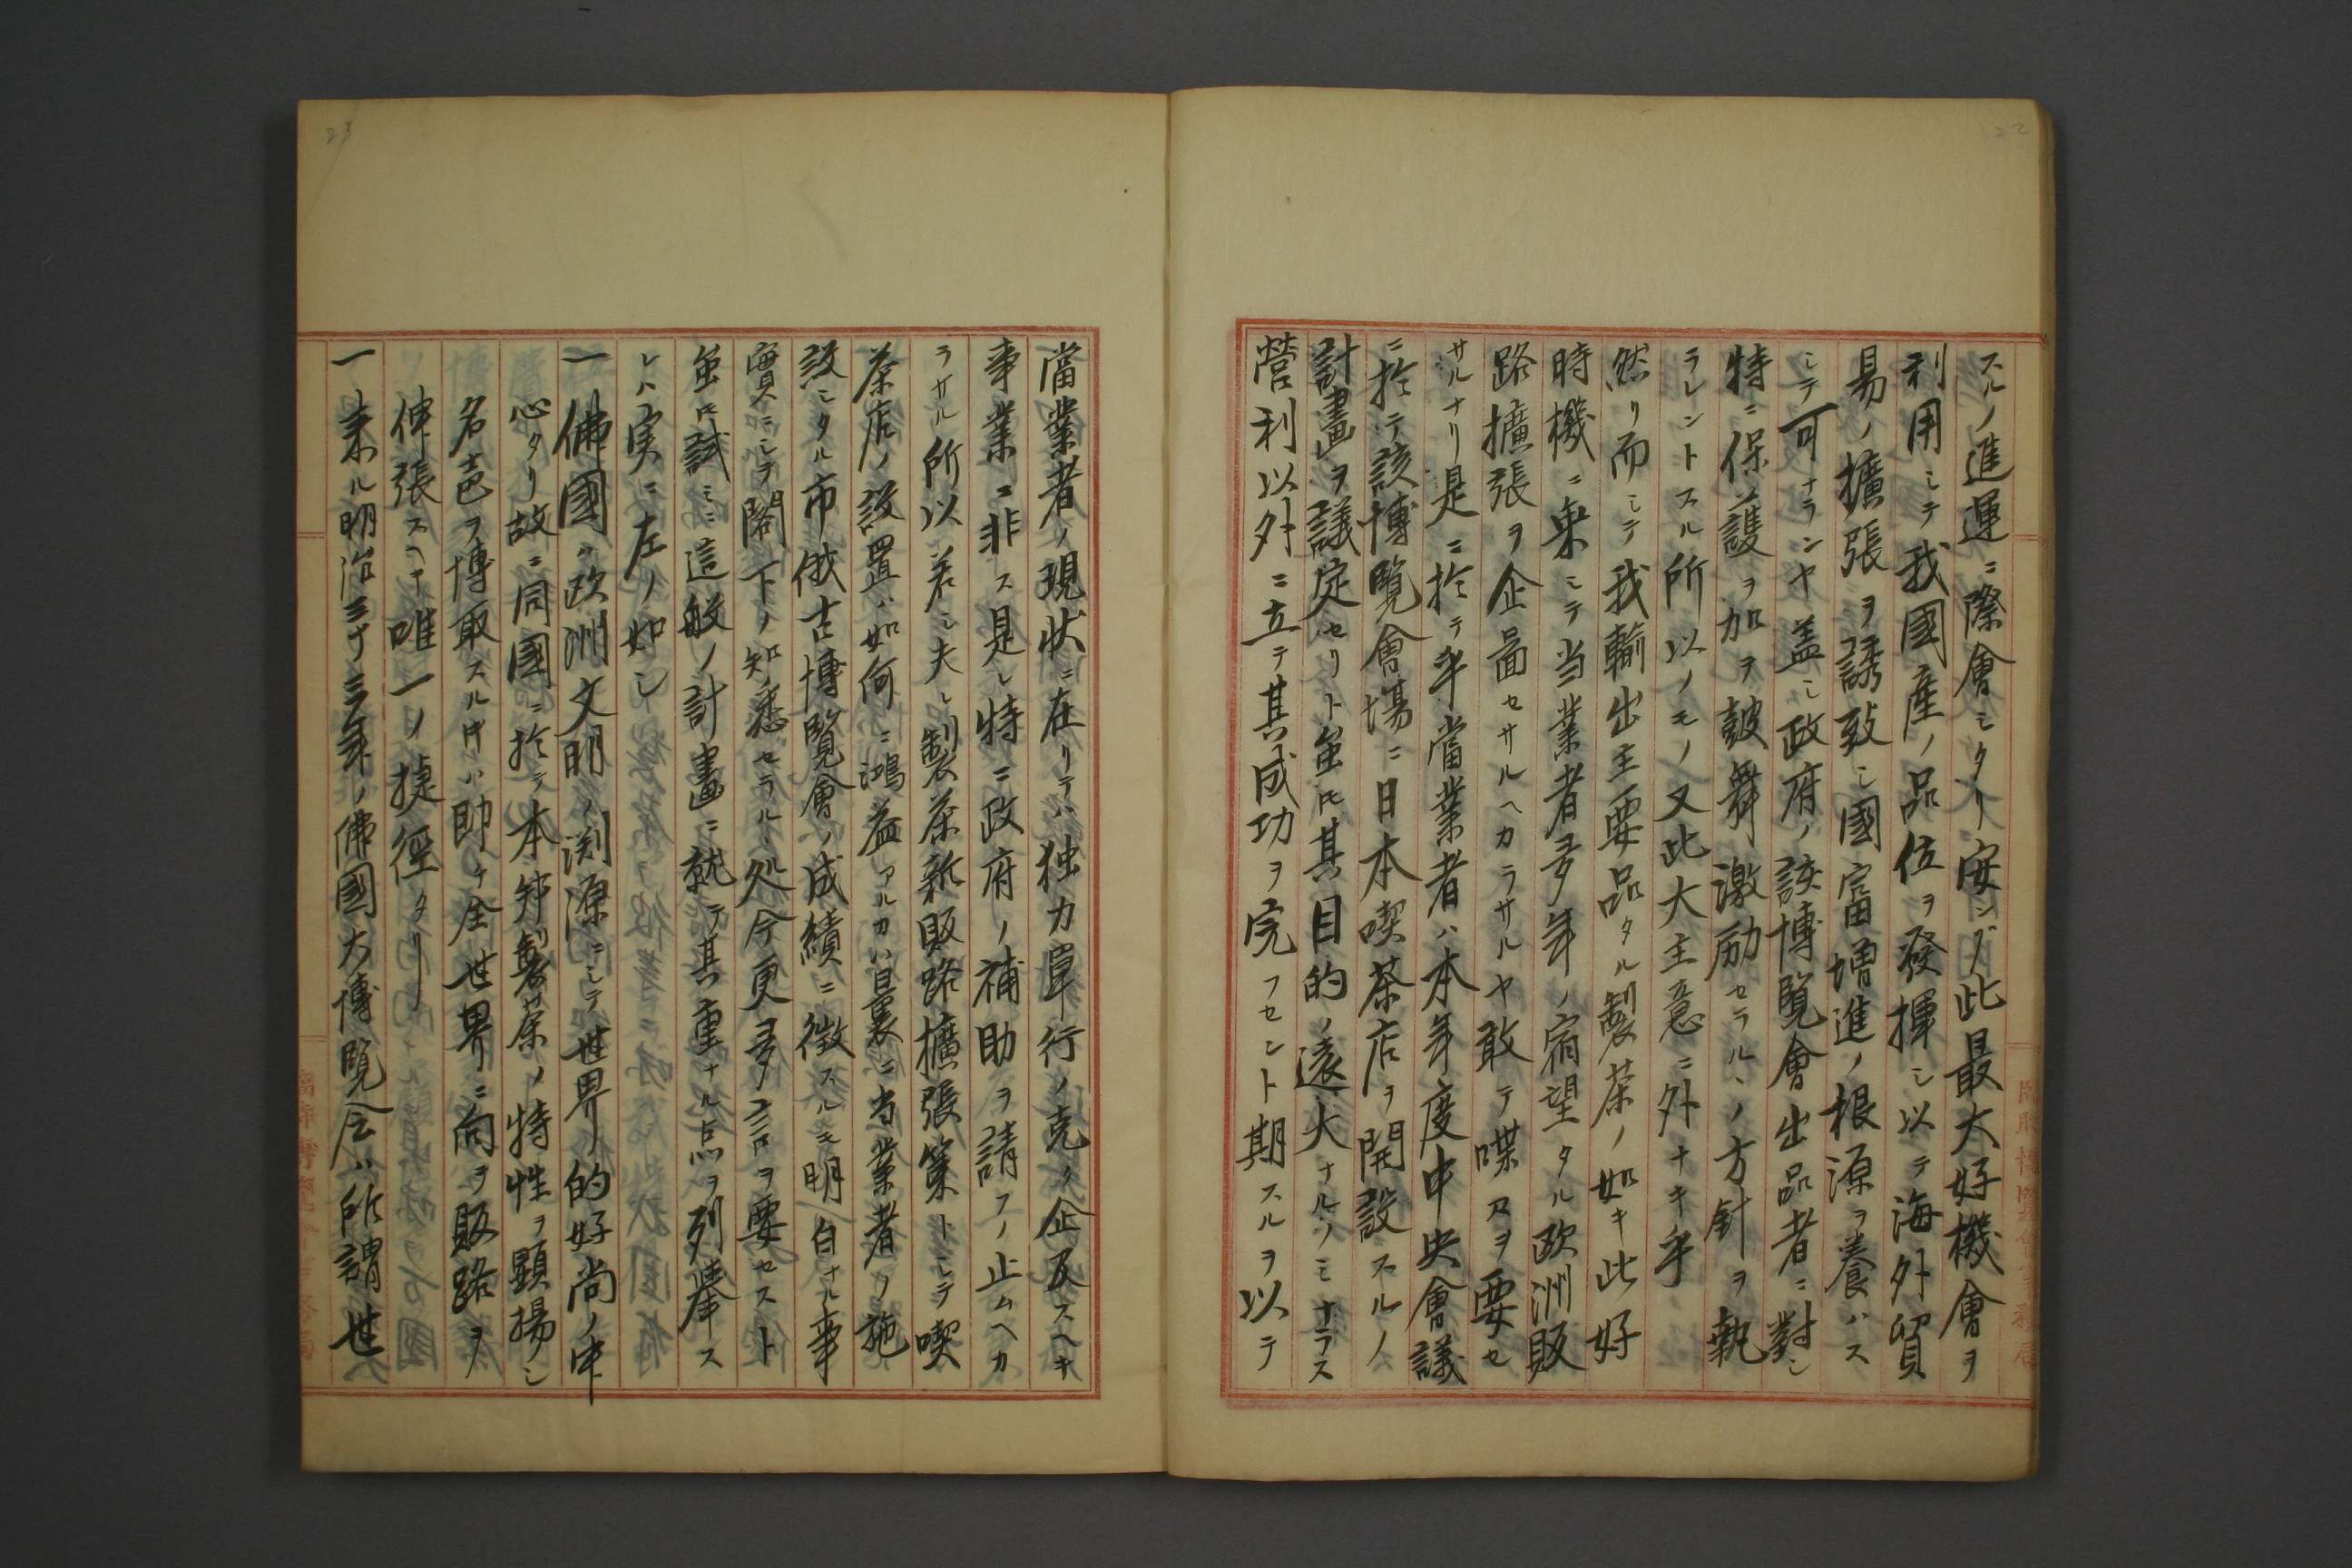 スルノ進運ニ際會シタリ安ンゾ此最大好機會ヲ
利用シテ我國産ノ品位ヲ發揮シ以テ海外貿
易ノ擴張ヲ誘致シ國富増進ノ根源ヲ養ハス
シテ可ナランヤ蓋シ政府ノ該博覧會出品者ニ對シ
特ニ保護ヲ加ヲ皷舞激励セラルヽノ方針ヲ執
ラレントスル所以ノモノ又此大主意ニ外ナキ乎
然リ而シテ我輸出主要品タル製茶ノ如キ此好
時機ニ乗シテ当業者多年ノ宿望タル欧洲販
路擴張ヲ企啚セサルヘカラサルヤ敢テ喋々ヲ要セ
サルナリ是ニ於テ乎當業者ハ本年度中央會議
ニ於テ該博覧會場ニ日本喫茶店ヲ開設スルノ
計畫ヲ議定セリト虽𪜈其目的ノ遠大ナルノミナラス
營利以外ニ立テ其成功ヲ完フセント期スルヲ以テ
當業者ノ現状ニ在リテハ独力單行ノ克ク企及スヘキ
事業ニ非ス是レ特ニ政府ノ補助ヲ請フノ止ムヘカ
ラサル所以若シ夫レ製茶新販路擴張策トシテ喫
茶店ノ設置ハ如何ニ鴻益アルカハ曩ニ当業者ノ施
設シタル市俄古博覧會ノ成績ニ徴スルモ明白ナル事
實ニシテ閣下ノ知悉セラルヽ処今更多言ヲ要セスト
虽𪜈試ミニ這般ノ計畫ニ就テ其重ナル点ヲ列挙ス
レハ実ニ左ノ如シ
一佛國ハ欧洲文明ノ渕源ニシテ世界的好尚ノ中
心タリ故ニ同國ニ於テ本邦製茶ノ特性ヲ顕揚シ
名声ヲ博取スル片ハ即チ全世界ニ向ヲ販路ヲ
伸張スヘキ唯一ノ捷径タリ
一来ル明治三十三年ノ佛國大博覧会ハ所謂世
22
23